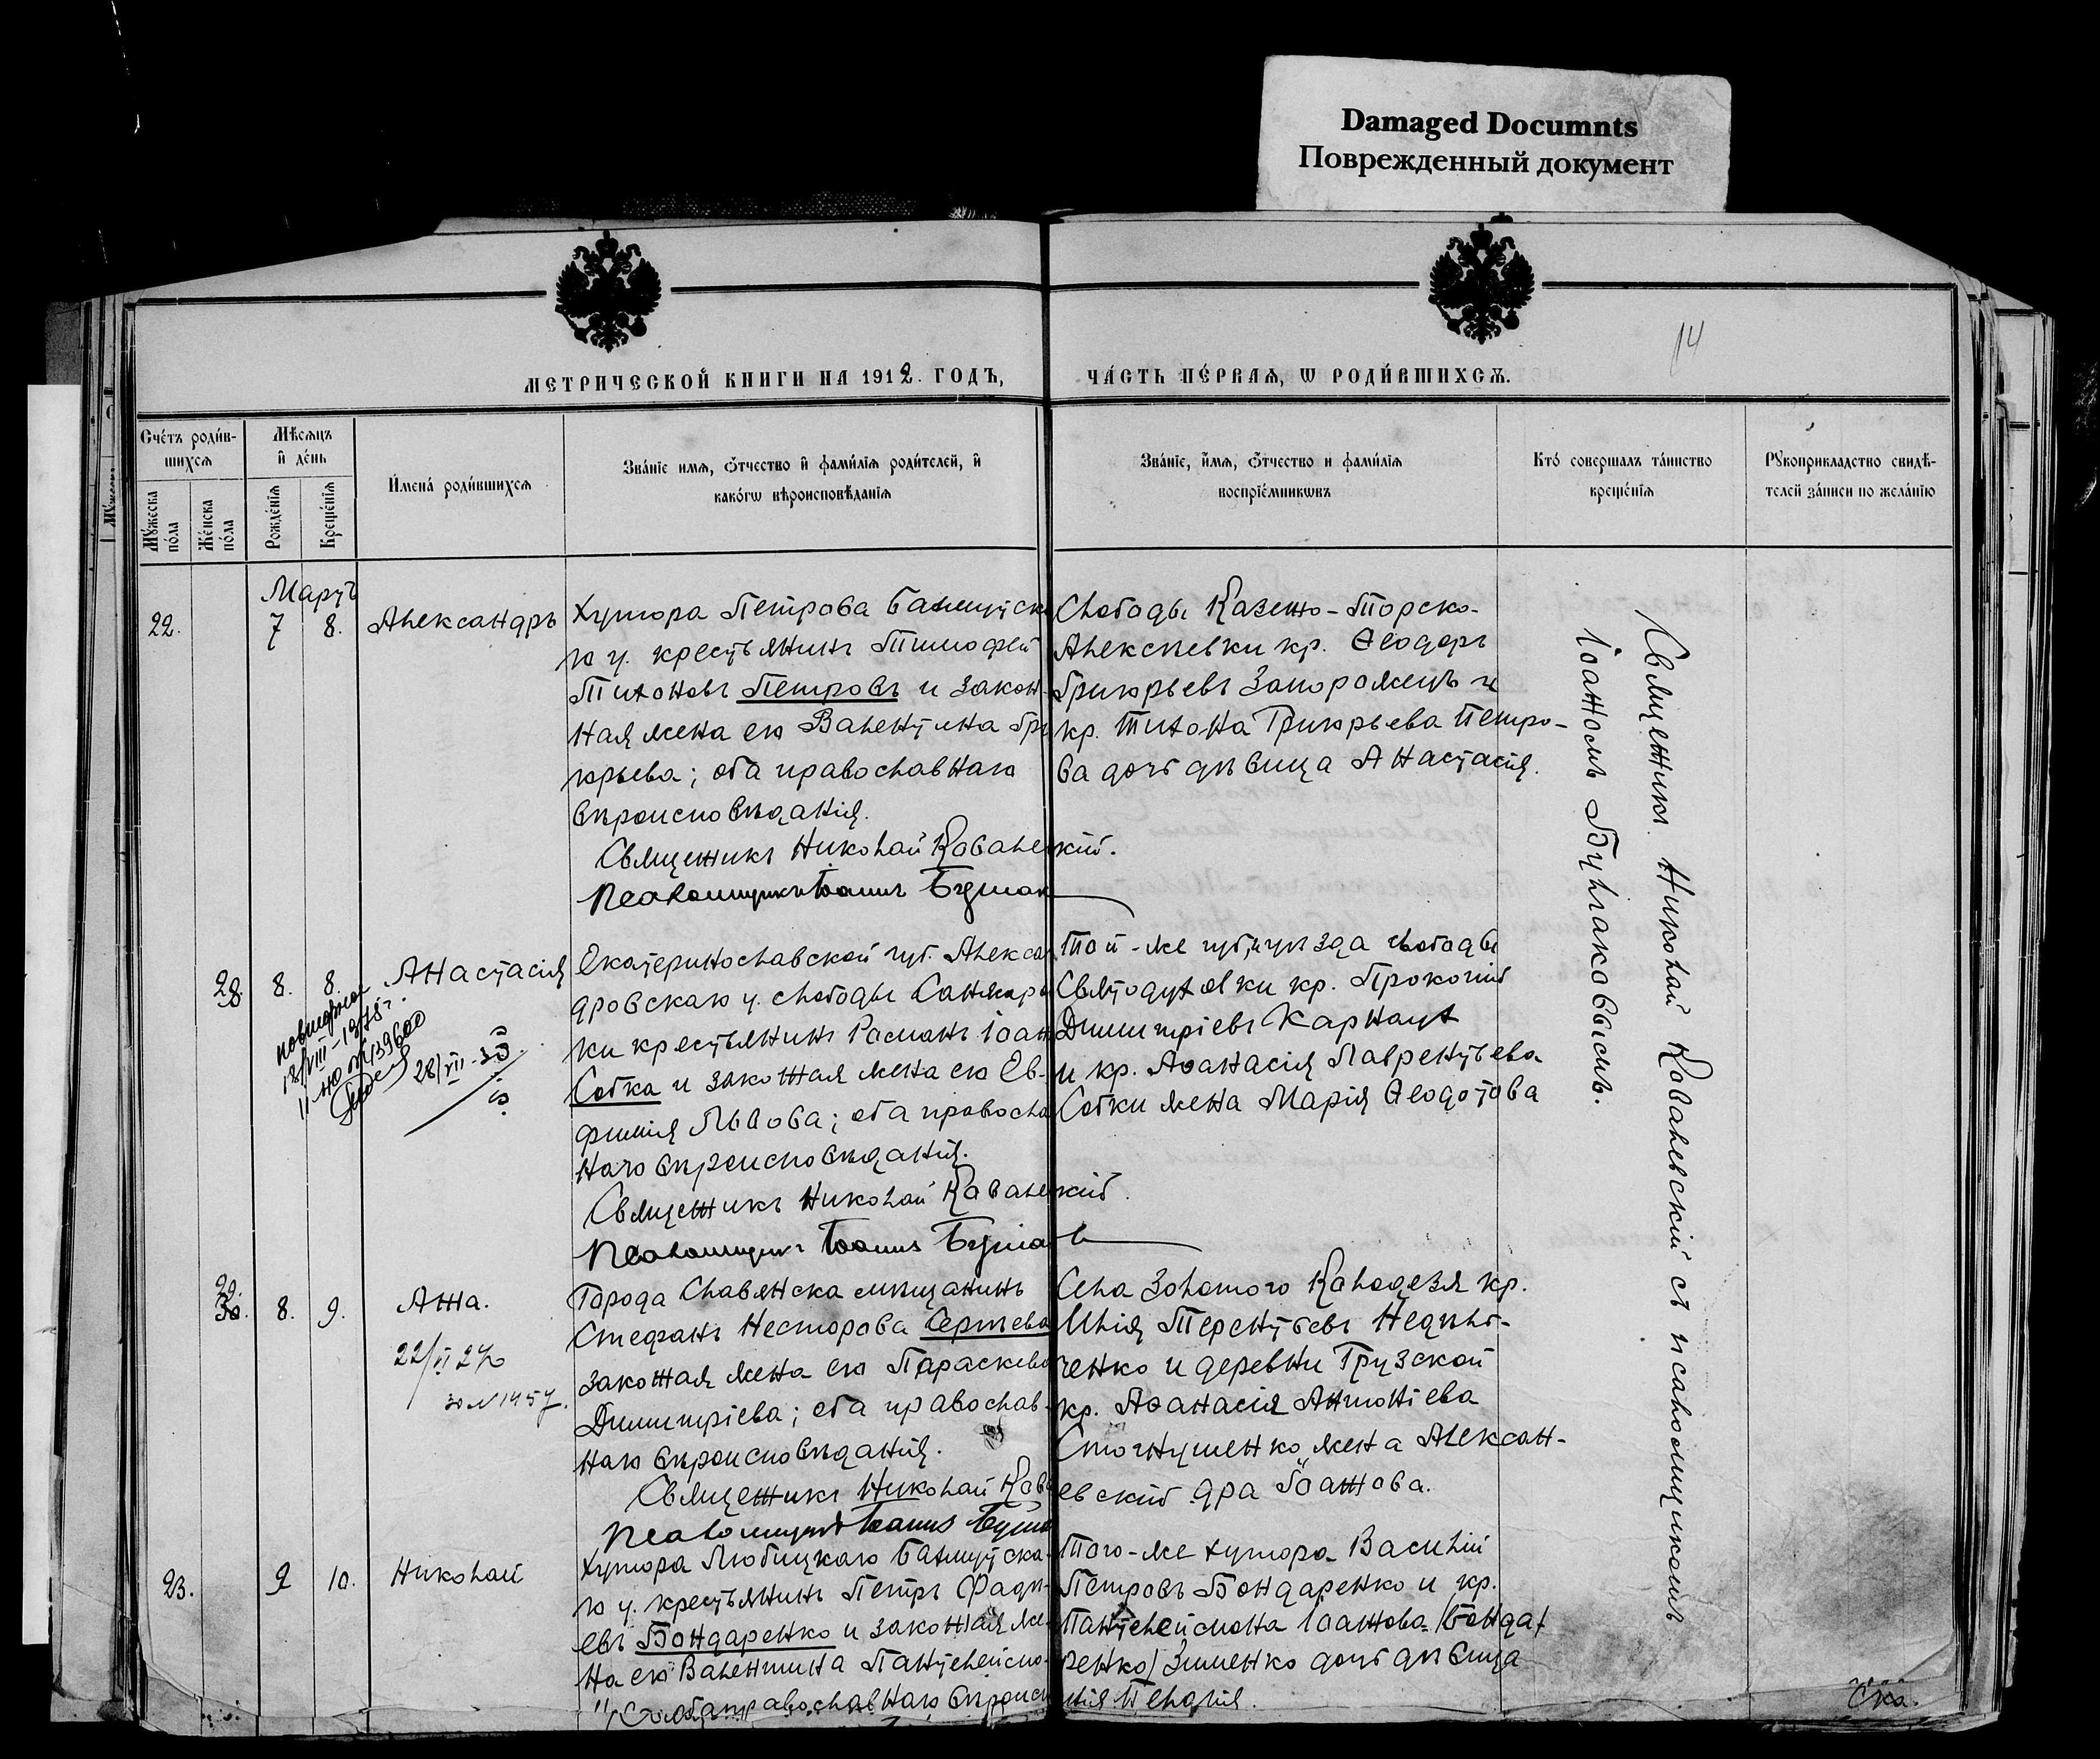 Damaged Documnts
Поврежденный документ
14
МЕТРИЧЕСКОЙ КНИГИ НА 1912. ГОДЪ,
ЧА́СТЬ ПЕ́РВАЯ, Ѡ РОДИ́ВШИХСЯ.
Сче́тъ роди́в-
шихся
Мѣсяцъ
и де́нь
Имена́ роди́вшихся
Зва́нїе имя, ѻтчество и фами́лїя роди́телей, и
како́гѡ вѣроисповѣ́данїя
Зва́нїе, и́мя, ѻтчество и фами́лїя
воспрїе́мникѡвъ
Кто́ совершалъ та́инство
креще́нїя
Рꙋкоприкладство свидѣ́-
телей за́писи по жела́нїю
Мꙋ́жеска
по́ла
Же́нска
по́ла
Рожде́нїя
Креще́нїя
Мартъ
22.
7
8.
Александръ
Хутора Петрова Бахмутска
го у. крестьянинъ Тимофей
Тихоновъ Петровъ и закон-
ная жена его Валентина Гри
горьева; оба православнаго
вѣроисповѣданія.
Священникъ Николай Ковалевскій.
Псаломщикъ Іоаннъ Булгак
Слободы Казенно-Торско-
Алексѣевки кр. Ѳеодоръ
Григорьевъ Запорожецъ и
кр. Тихона Григорьева Петро-
ва дочь дѣвица Анастасія.
28.
8.
8.
Анастасія
повторное
18/VIII-1978г.
II-ЮО №139600
28/VII-30
Екатеринославской губ. Алексан
дровскаго у. слободы Санжаро
ки крестьянинъ Романъ Іоан
Собка и законная жена его Ев-
фимія Львова; оба правосла
наго вѣроисповѣданія.
Священникъ Николай Ковалевскій.
Псаломщикъ Іоаннъ Булгаковъ
Той-же губ. и уѣзда слободы
Святодуховки кр. Прокопій
Димитріевъ Карнаух
и кр. Аѳанасія Лаврентьева
Собки жена Марія Ѳеодотова
29.
30.
8.
9.
Анна.
22/VI 27
за №1457.
Города Славянска мѣщанинъ
Стефанъ Несторовъ Сергѣевъ
законная жена его Параскева
Димитріева; оба православ-
наго вѣроисповѣданія.
Священникъ Николай Ковалевскій
Псаломщикъ Іоаннъ Булга
Села Золотого Колодезя кр.
Илія Терентьевъ Недѣль-
ченко и деревни Грузской
кр. Аѳанасія Антоніева
жена Алексан-
дра Іоаннова.
23.
9
10.
Николай
Хутора Любицкаго Бахмутска-
го у. крестьянинъ Петръ Фадѣ-
евъ Бондаренко и законная же-
на его Валентина Пантелеимо-
православнаго вѣроисп
Того-же хутора Василій
Петровъ Бондаренко и кр.
Пантелеимона Іоаннова /Бонда/
ренко/ Зименко дочь дѣвица
Пелагія.
Священникъ Николай Ковалевскій съ псаломщикомъ
Іоанномъ Булгаковымъ.